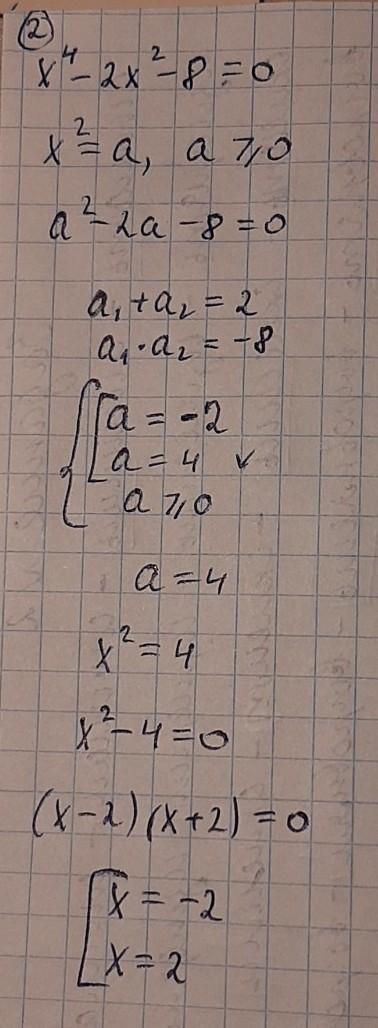 ②
x⁴ - 2x² - 8 = 0
x² = a, a ⩾ 0
a² - 2a - 8 = 0
a₁ + a₂ = 2
a₁ · a₂ = -8
{ [ a = -2
a = 4 ✓
a ⩾ 0
a = 4
x² = 4
x² - 4 = 0
(x - 2)(x + 2) = 0
[ x = -2
x = 2